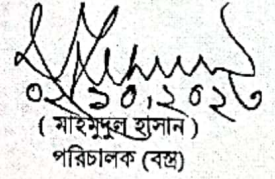 ০২.১০.২০২৩
( মাহমুদুল হাসান )
পরিচালক (বস্ত্র)